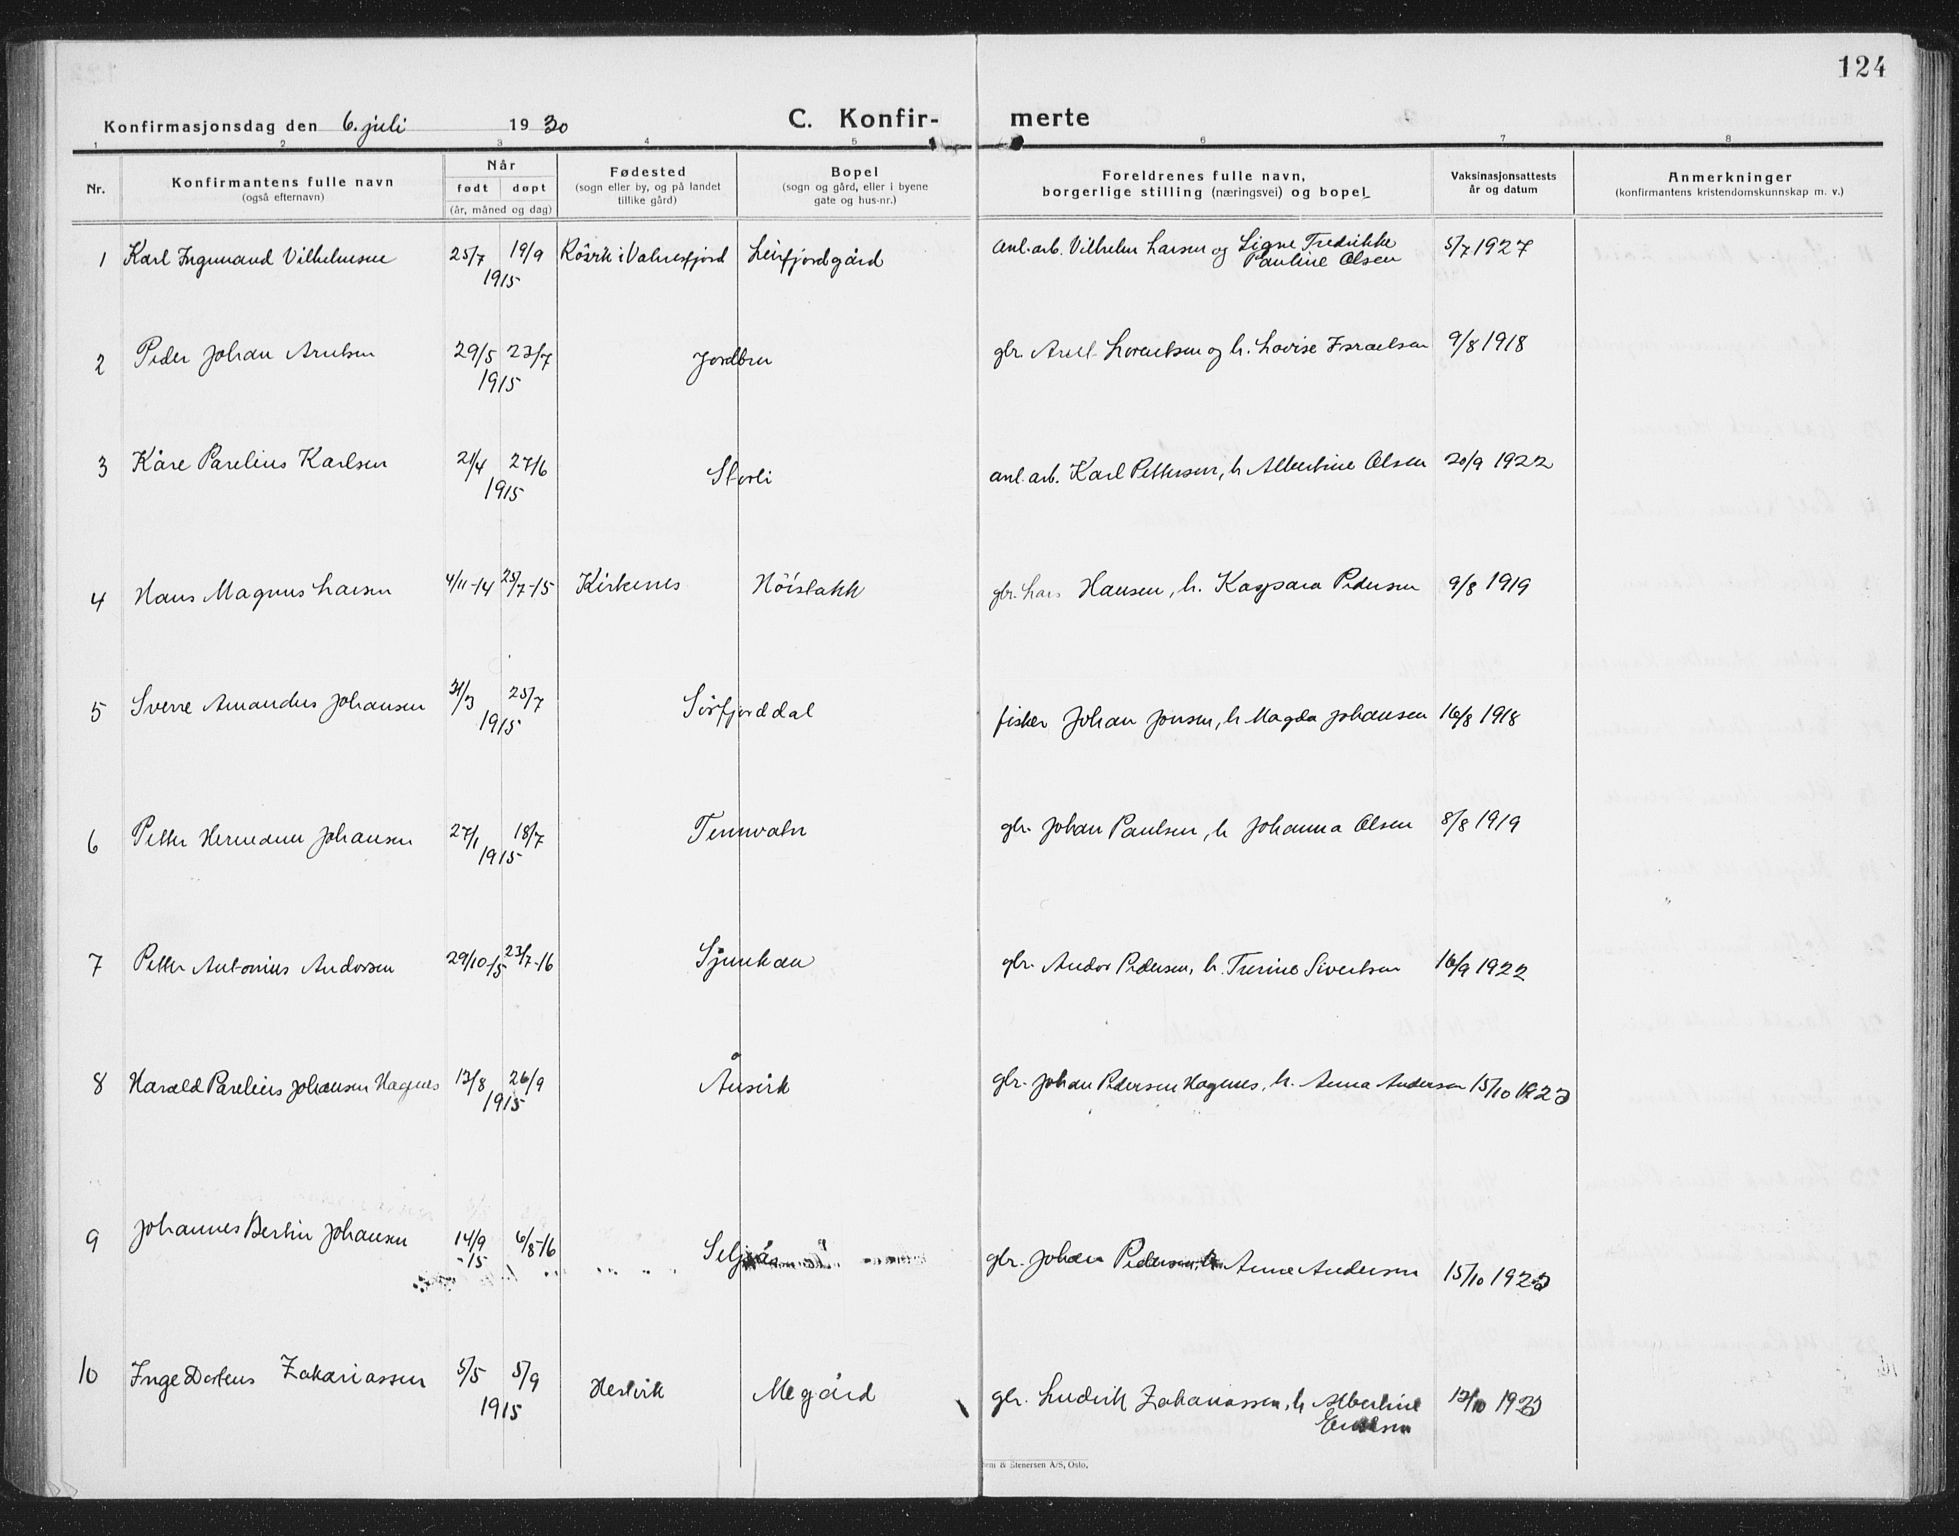 124
Konfirmasjonsdag den 6. juli 1930 C. Konfir- merte
1 2 3 4 5 6 7 8
Nr. Konfirmantens fulle navn (også efternavn) Når født døpt (år, måned og dag) Fødested (sogn eller by, og på landet tillike gård) Bopel (sogn og gård, eller i byene gate og hus-nr.) Foreldrenes fulle navn, borgerlige stilling (næringsvei) og bopel Vaksinasjonsattests år og datum Anmerkninger (konfirmantens kristendomskunnskap m. v.)
1 Karl Ingmand Vilhelmsen 25/7 19/9 1915 Røsvik i Valnesfjord Leirfjordgård anl. arb. Vilhelm Larsen og Signe Fredrikke Pauline Olsen 5/7 1927
2 Peder Johan Arntsen 29/5 23/7 1915 Jordbru gbr. Arnt Lorentsen og h. Lovise Israelsen 9/8 1918
3 Kåre Parelius Karlsen 21/4 27/6 1915 Storli anl. arb. Karl Pettersen, h. Albertine Olsen 20/9 1922
4 Hans Magnus Larsen 4/11-14 25/7-15 Kirkenes Höistakk gbr. Lars Hansen, h. Kaspara Pedersen 9/8 1919
5 Sverre Amandus Johansen 31/3 25/7 1915 Sörfjorddal fisker Johan Jonsen, h. Magda Johansen 16/8 1918
6 Petter Hermann Johansen 27/1 18/7 1915 Tennvatn gbr. Johan Paulsen, h. Johanna Olsen 8/8 1919
7 Petter Antonius Andorsen 29/10-15 23/7-16 Sjunkan gbr. Andor Pedersen, h. Trerine Sivertsen 16/9 1922
8 Harald Parelius Johansen Hagnes 13/8 26/9 1915 Ånsvik gbr. Johan Pedersen Hagnes, h. Anna Andersen 15/10 1923
9 Johannes Bertin Johansen 14/9 -15 6/8-16 Seljeås gbr. Johan Pedersen, h. Anna Andersen 15/10 1923
10 Inge Dorteus Zakariassen 5/5 5/9 1915 Hestvik Megård gbr. Ludvik Zakariassen, h. Albertine 13/10 1923
& Stenersen A/S, Oslo.